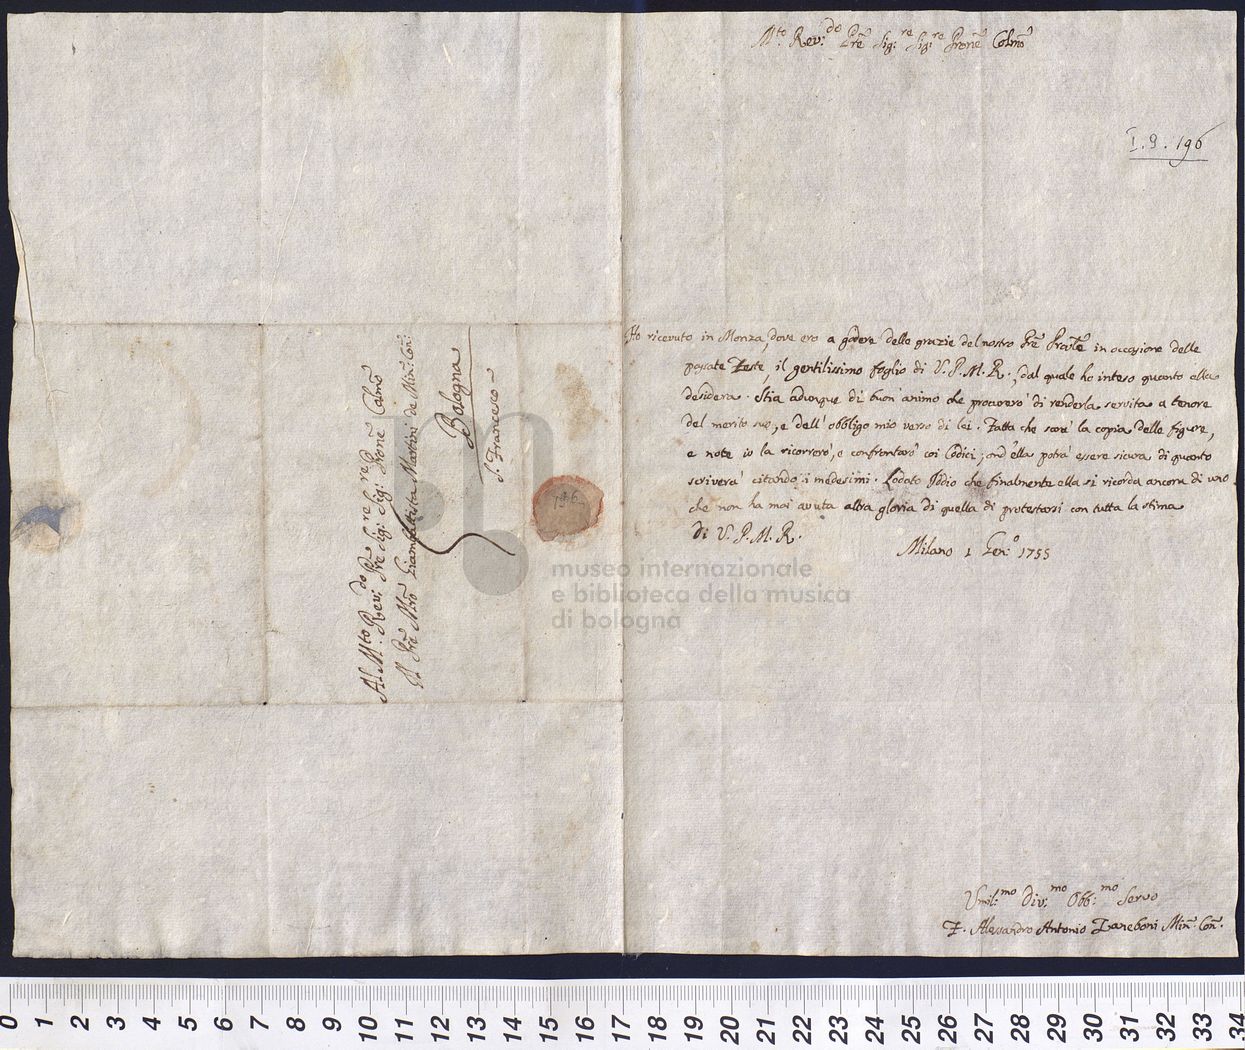 Al M.to Rev: do Pre Sig:re Sig:re Prone Colmo
Il Pre Mro Giambattista Martini de Min: Con:
Bologna
S. Francesco
196
M.to Rev:do Pre Sig:re Sig:re Prone Colmo
I. 9. 196
Ho ricevuto in Monza, dove ero a godere delle grazie del nostro Pre in occasione delle
passate Feste, il gentilissimo foglio di V. P. M. R., dal quale ho inteso quanto ella
desidera. Stia adunque di buon animo che procurerò di renderla servita a tenore
del merito suo, e dell' obbligo mio verso di lei. Fatta che sarà la copia delle figure,
e note io la ricorrerò, e confrontarò coi Codici; ond' ella potrà essere sicura di quanto
scriverà citando i medesimi. Lodato Iddio che finalmente ella si ricorda ancora di uno
che non ha mai avuta altra gloria di quella di protestarsi con tutta la stima
Di V. P. M. R.
Milano 1 Gen:o 1755
Umil:mo Div:mo Obb:mo Servo
F. Alessandro Antonio Zaneboni Min: Con:
museo internazionale
e biblioteca della musica
di bologna
0 1 2 3 4 5 6 7 8 9 10 11 12 13 14 15 16 17 18 19 20 21 22 23 24 25 26 27 28 29 30 31 32 33 34